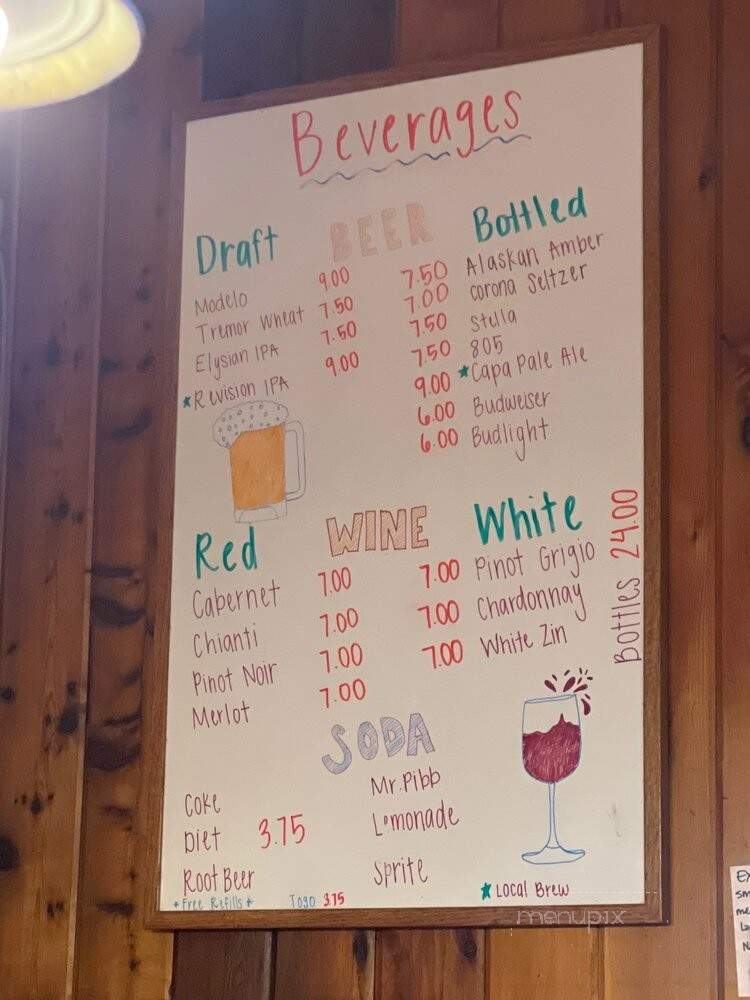 Beverages
BEER
Draft
Modelo 9.00
Tremor Wheat 7.50
Elysian IPA 7.50
★Revision IPA 9.00
Bottled
7.50 Alaskan Amber
7.00 Corona Seltzer
7.50 Stella
7.50 805
9.00 ★Capa Pale Ale
6.00 Budweiser
6.00 Budlight
WINE
Red
Cabernet 7.00
Chianti 7.00
Pinot Noir 7.00
Merlot 7.00
White
7.00 Pinot Grigio
7.00 Chardonnay
7.00 White Zin
Bottles 24.00
SODA
Coke
Diet 3.75
Root Beer
Mr. Pibb
Lemonade
Sprite
*Free Refills*
Togo 3.75
★ Local Brew
menupix